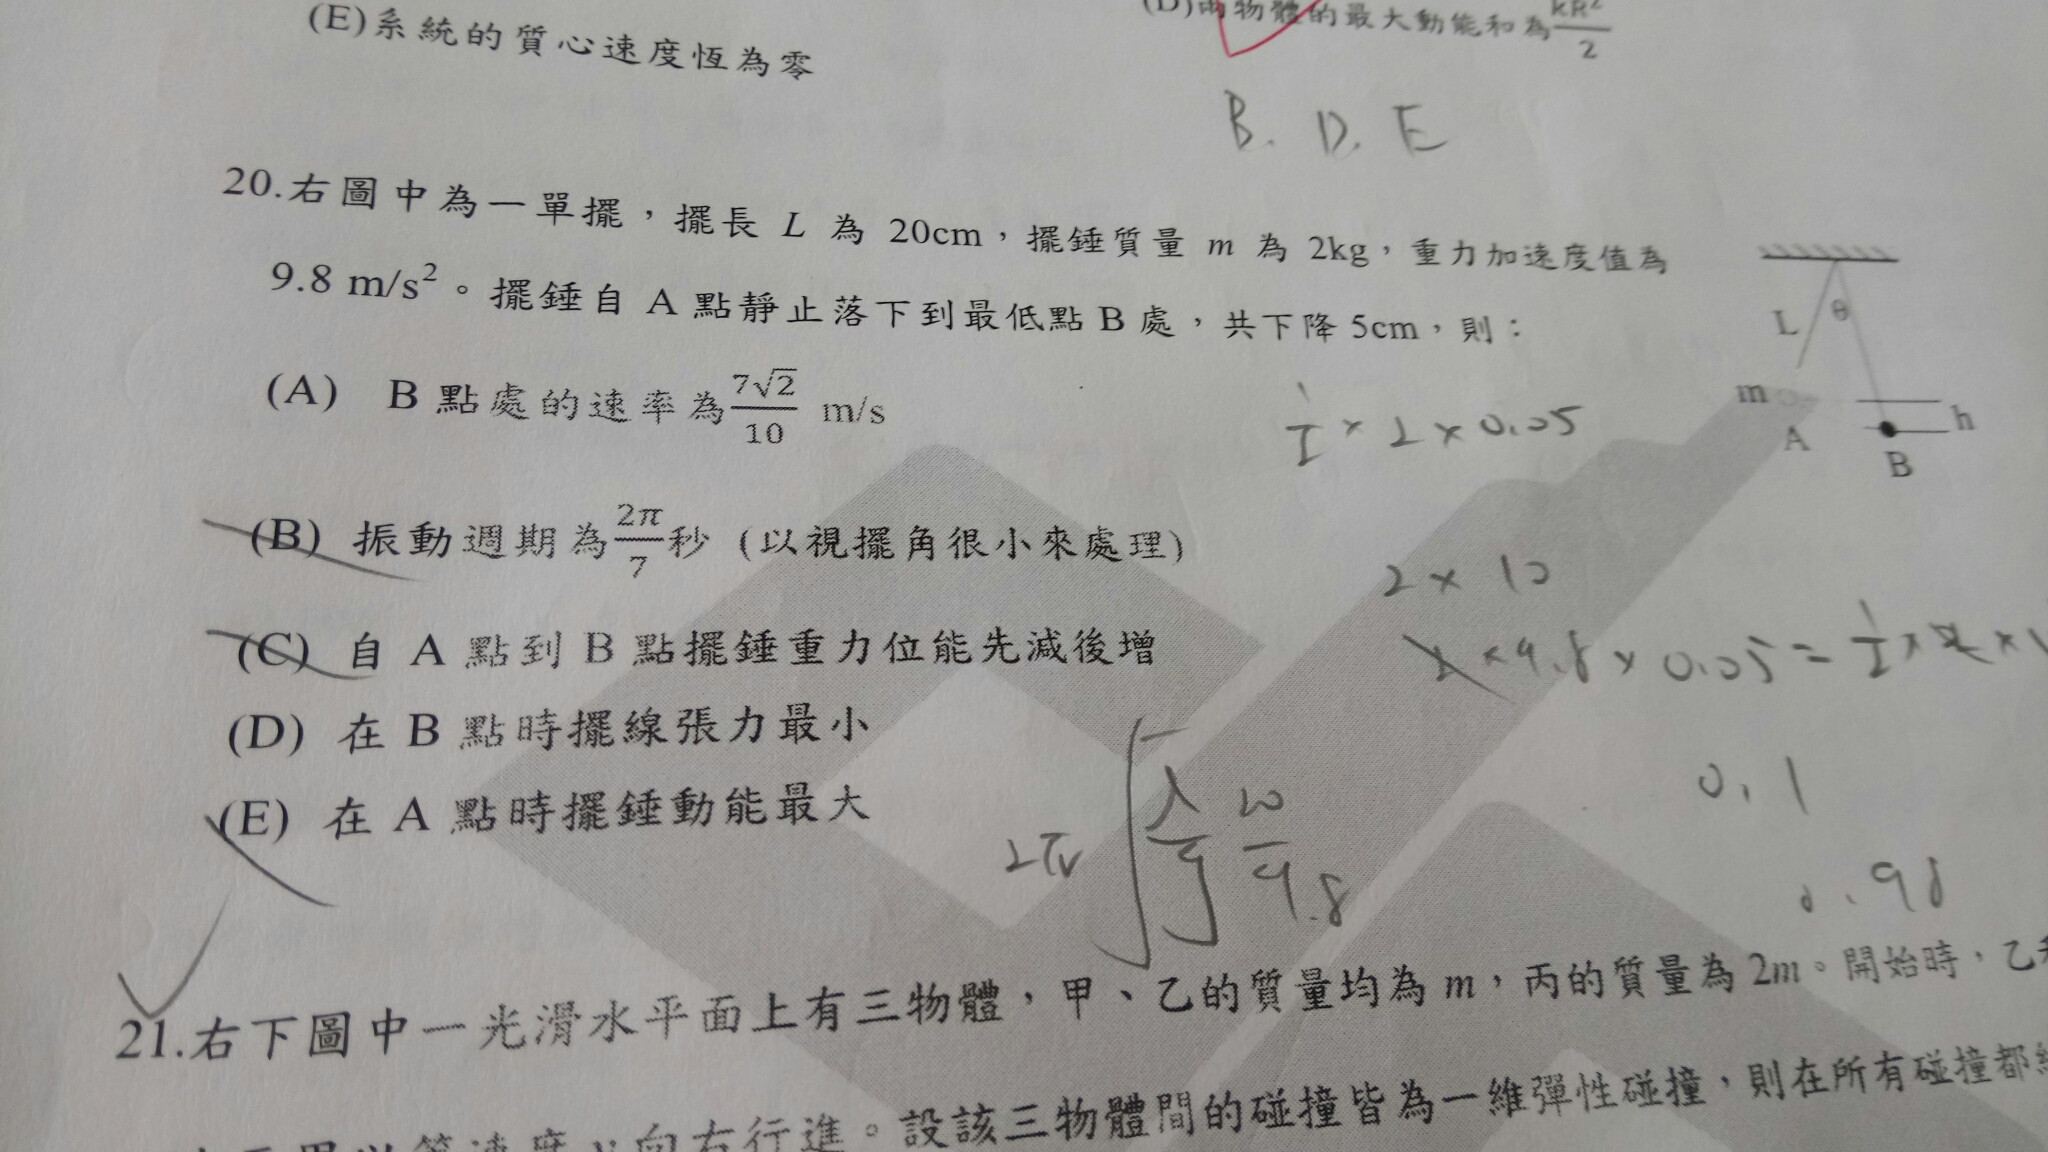 (E)系統的質心速度恆為零
(D)兩物體的最大動能和為kR²/2
B. D. E
20.右圖中為一單擺，擺長 L 為 20cm，擺錘質量 m 為 2kg，重力加速度值為
9.8 m/s²。擺錘自 A 點靜止落下到最低點 B 處，共下降 5cm，則：
L
θ
m
A
B
h
(A) B 點處的速率為7√2/10 m/s
1/2 × 2 × 0.05
(B) 振動週期為2π/7秒 (以視擺角很小來處理)
2 × 10
(C) 自 A 點到 B 點擺錘重力位能先減後增
2 × 9.8 × 0.05 = 1/2 × 2 ×
(D) 在 B 點時擺線張力最小
0.1
(E) 在 A 點時擺錘動能最大
2π
9.8
0.98
21.右下圖中一光滑水平面上有三物體，甲、乙的質量均為 m，丙的質量為 2m。開始時，乙
以等速度 v 向右行進。設該三物體間的碰撞皆為一維彈性碰撞，則在所有碰撞都